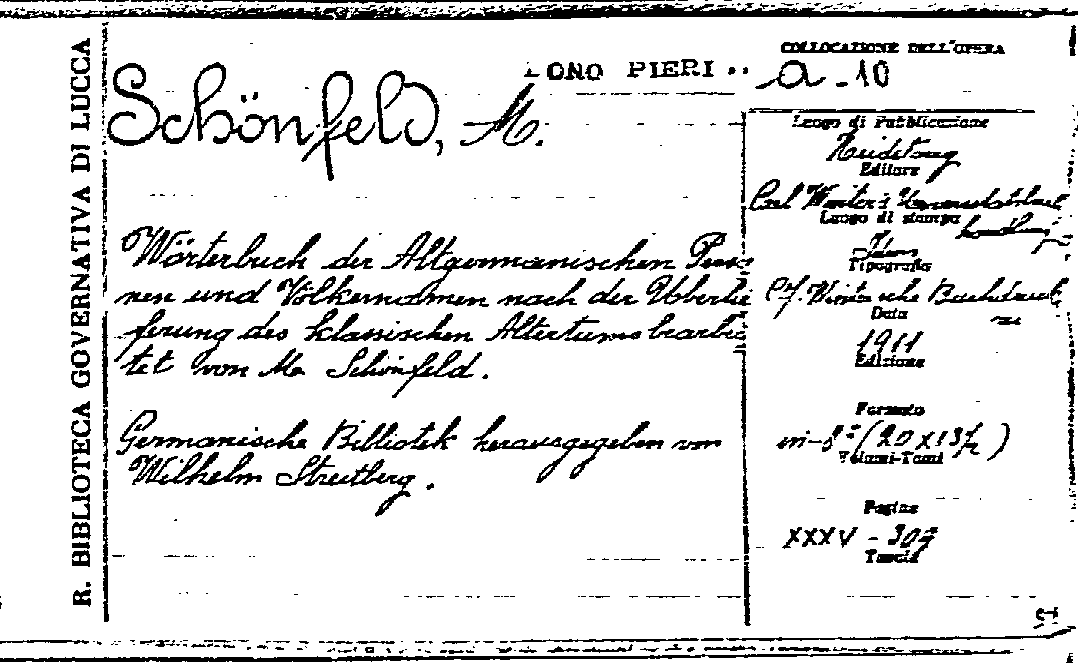 R. BIBLIOTECA GOVERNATIVA DI LUCCA
ONO PIERI
Schönfeld, M.
Wörterbuch der Altgermanischen Perso
nen und Völkernamen nach der Überlie
ferung des klassischen Altertums bearbei
tet von M. Schönfeld.
Germanische Bibliotek herausgegeben von
Wilhelm Streitberg.
COLLOCAZIONE DELL'OPERA
a - 10
Luogo di Pubblicazione
Heidelberg
Editore
Carl Winter's
Luogo di stampa
Tipografo
Data
1911
Edizione
Formato
in-8° (20 x 13½)
Volumi-Tomi
Pagine
XXXV - 307
Tavole